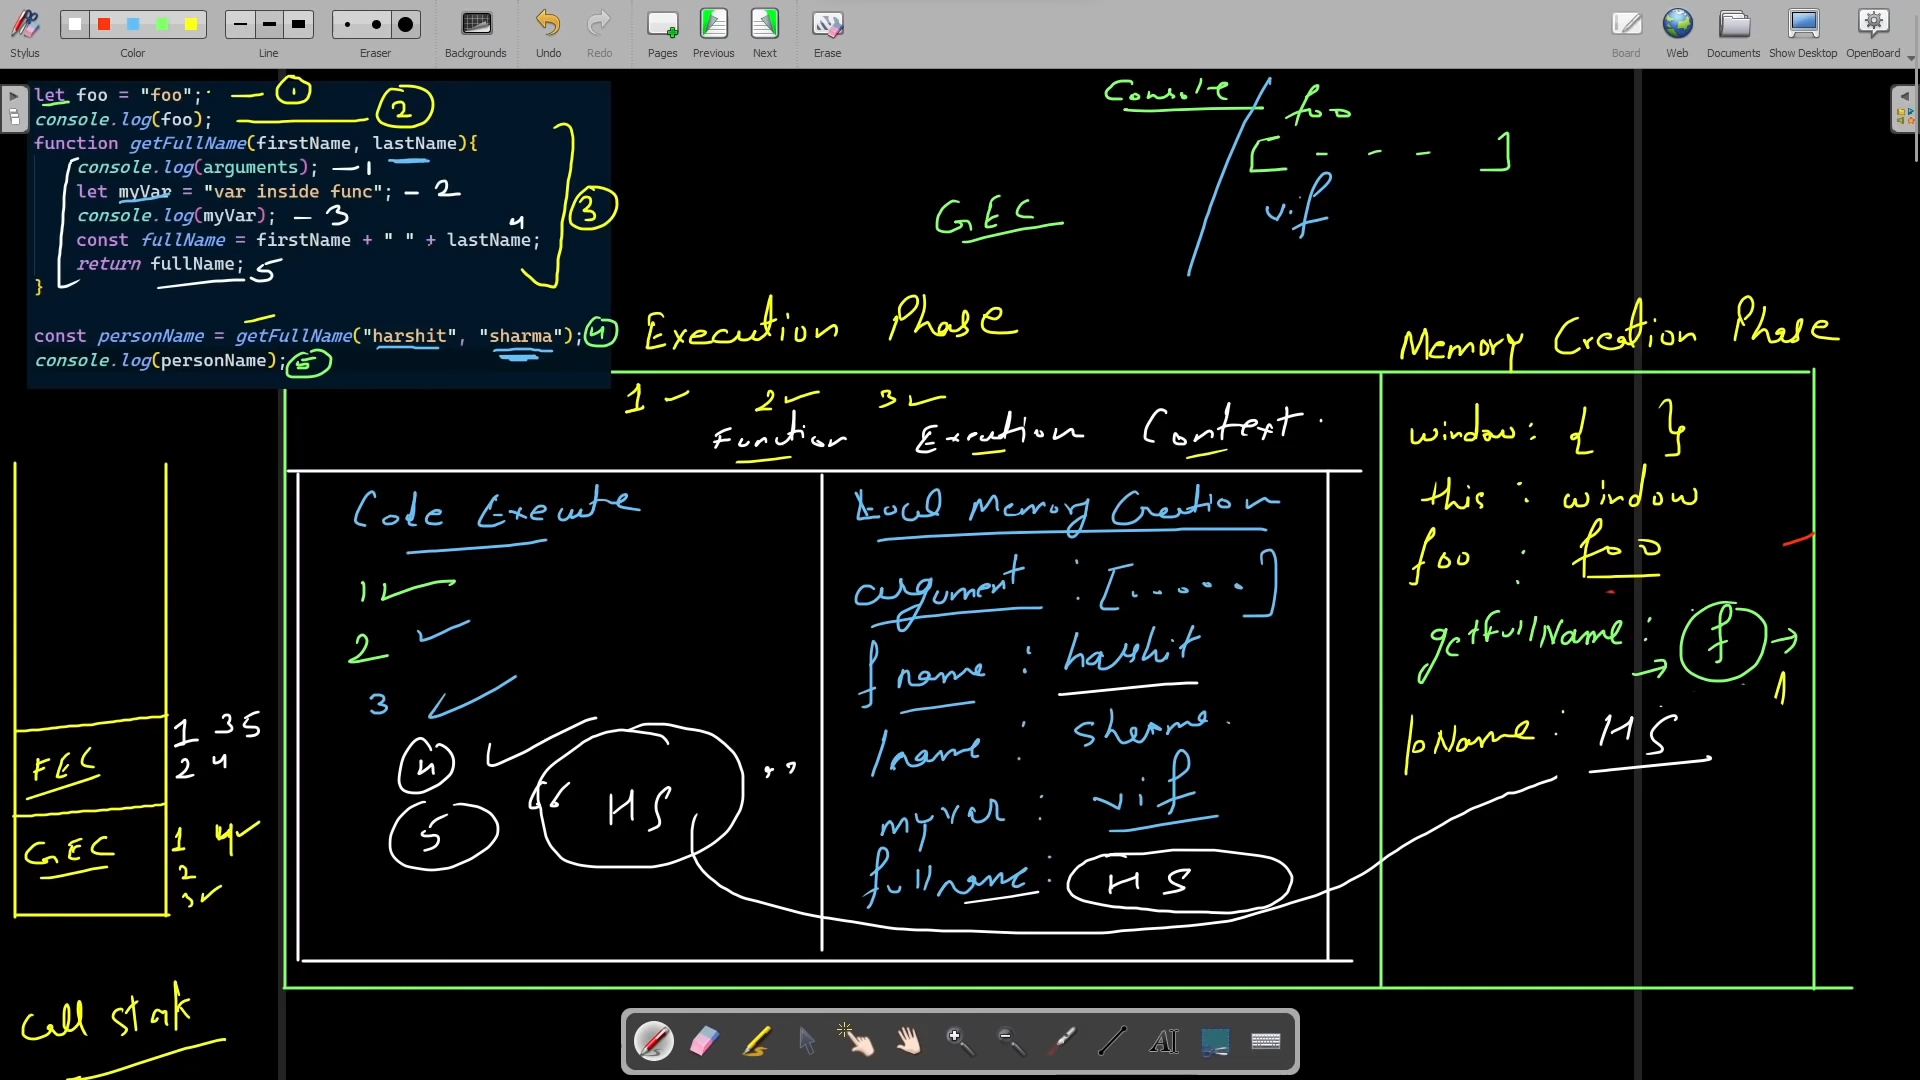 Stylus Color Line Eraser Backgrounds Undo Redo Pages Previous Next Erase Board Web Documents Show Desktop OpenBoard
let foo = "foo"; 1
console.log(foo); 2
function getFullName(firstName, lastName){
console.log(arguments); 1
let myVar = "var inside func"; 2
console.log(myVar); 3
const fullName = firstName + " " + lastName; 4
return fullName; 5
}
3
const personName = getFullName("harshit", "sharma"); 4
console.log(personName); 5
Console
foo
[ - - - ]
v.if
GEC
Execution Phase
Memory Creation Phase
1 ✓ 2 ✓ 3 ✓
Function Execution Context.
Code Execute
1 ✓
2 ✓
3 ✓
4 ✓
5 "HS"
Local Memory Creation
argument : [......]
fname : harshit
lname : sharma.
myvar : vif
fullname : HS
window: { }
this : window
foo : foo
getFullName: → f →
1
pName : HS
FEC
1 3 5
2 4
GEC
1 4 ✓
2
3 ✓
Call stak
AI